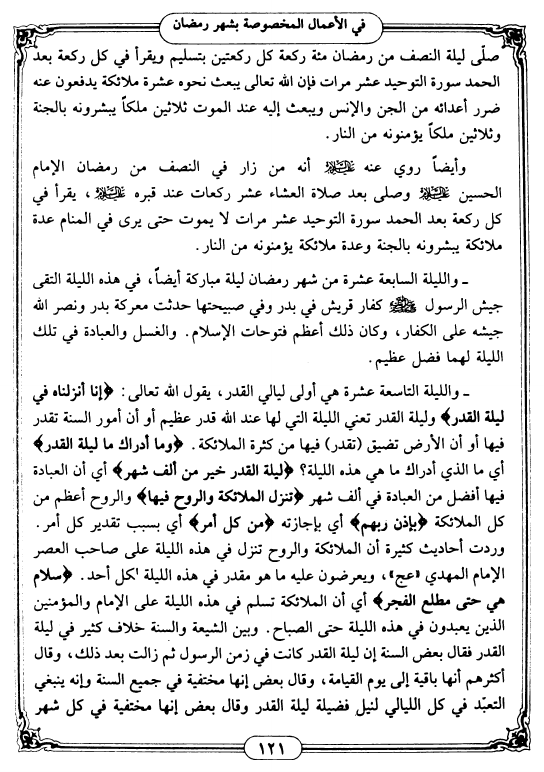 في الأعمال المخصوصة بشهر رمضان
صلّى ليلة النصف من رمضان مئة ركعة كل ركعتين بتسليم ويقرأ في كل ركعة بعد
الحمد سورة التوحيد عشر مرات فإن الله تعالى يبعث نحوه عشرة ملائكة يدفعون عنه
ضرر أعدائه من الجن والإنس ويبعث إليه عند الموت ثلاثين ملكاً يبشرونه بالجنة
وثلاثين ملكاً يؤمنونه من النار.
وأيضاً روي عنه عليه السلام أنه من زار في النصف من رمضان الإمام
الحسين عليه السلام وصلى بعد صلاة العشاء عشر ركعات عند قبره عليه السلام، يقرأ في
كل ركعة بعد الحمد سورة التوحيد عشر مرات لا يموت حتى يرى في المنام عدة
ملائكة يبشرونه بالجنة وعدة ملائكة يؤمنونه من النار.
ـ والليلة السابعة عشرة من شهر رمضان ليلة مباركة أيضاً، في هذه الليلة التقى
جيش الرسول ﷺ كفار قريش في بدر وفي صبيحتها حدثت معركة بدر ونصر الله
جيشه على الكفار، وكان ذلك أعظم فتوحات الإسلام. والغسل والعبادة في تلك
الليلة لهما فضل عظيم.
ـ والليلة التاسعة عشرة هي أولى ليالي القدر، يقول الله تعالى: ﴿إنا أنزلناه في
ليلة القدر﴾ وليلة القدر تعني الليلة التي لها عند الله قدر عظيم أو أن أمور السنة تقدر
فيها أو أن الأرض تضيق (تقدر) فيها من كثرة الملائكة. ﴿وما أدراك ما ليلة القدر﴾
أي ما الذي أدراك ما هي هذه الليلة؟ ﴿ليلة القدر خير من ألف شهر﴾ أي أن العبادة
فيها أفضل من العبادة في ألف شهر ﴿تنزل الملائكة والروح فيها﴾ والروح أعظم من
كل الملائكة ﴿بإذن ربهم﴾ أي بإجازته ﴿من كل أمر﴾ أي بسبب تقدير كل أمر.
وردت أحاديث كثيرة أن الملائكة والروح تنزل في هذه الليلة على صاحب العصر
الإمام المهدي «عج»، ويعرضون عليه ما هو مقدر في هذه الليلة لكل أحد. ﴿سلام
هي حتى مطلع الفجر﴾ أي أن الملائكة تسلم في هذه الليلة على الإمام والمؤمنين
الذين يعبدون في هذه الليلة حتى الصباح. وبين الشيعة والسنة خلاف كثير في ليلة
القدر فقال بعض السنة إن ليلة القدر كانت في زمن الرسول ثم زالت بعد ذلك، وقال
أكثرهم أنها باقية إلى يوم القيامة، وقال بعض إنها مختفية في جميع السنة وإنه ينبغي
التعبّد في كل الليالي لنيل فضيلة ليلة القدر وقال بعض إنها مختفية في كل شهر
١٢١